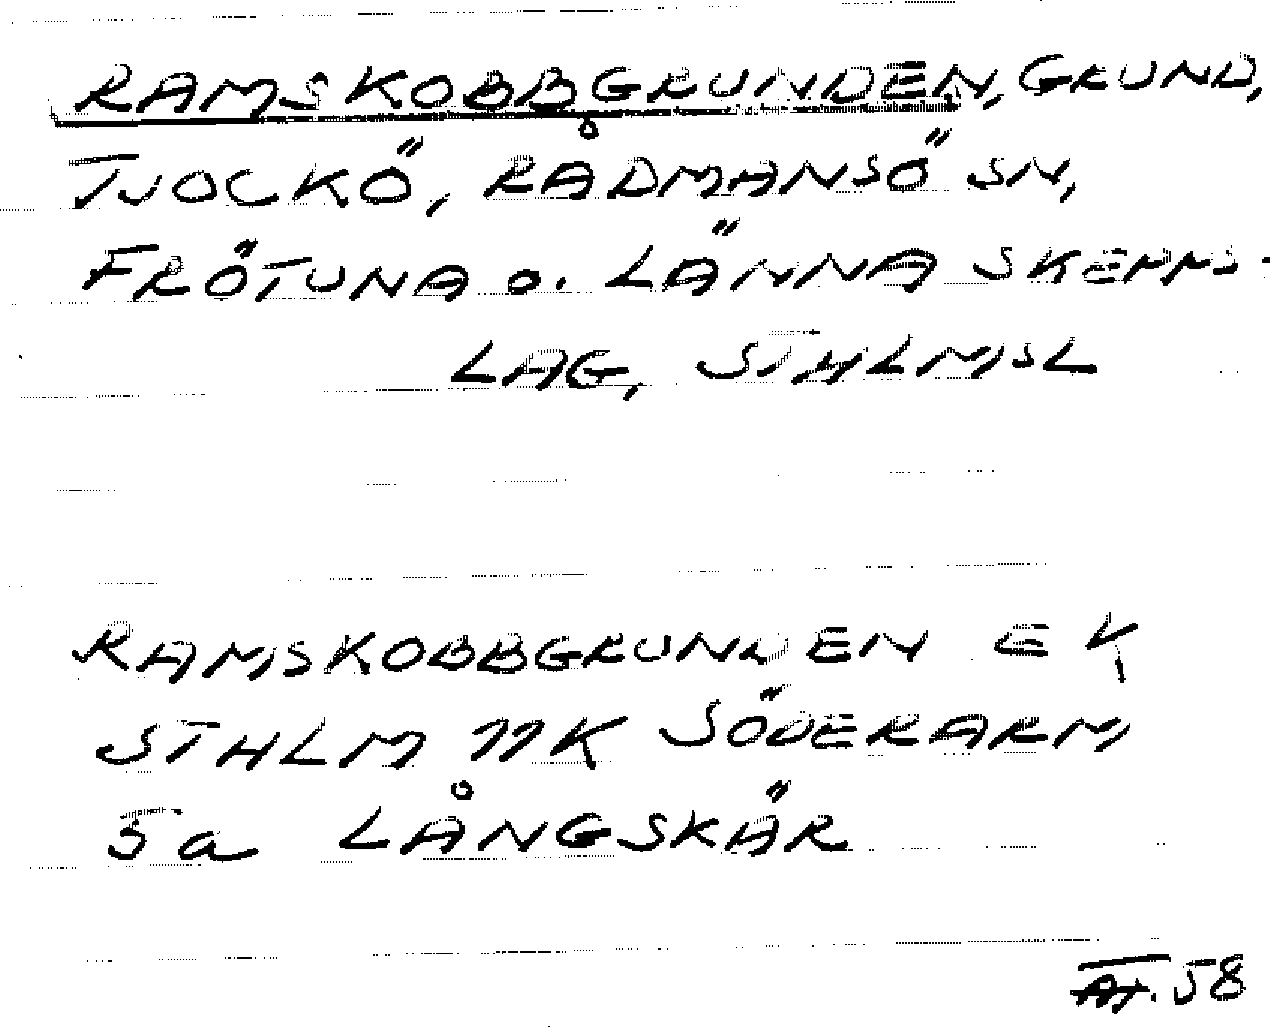 RAMSKOBBGRUNDEN, GRUND,
TJOCKÖ, RÅDMANSÖ SN,
FRÖTUNA O. LÄNNA SKEPPS-
LAG, STHLMSL
RAMSKOBBGRUNDEN EK
STHLM 11K SÖDERARM
5a LÅNGSKÄR
58